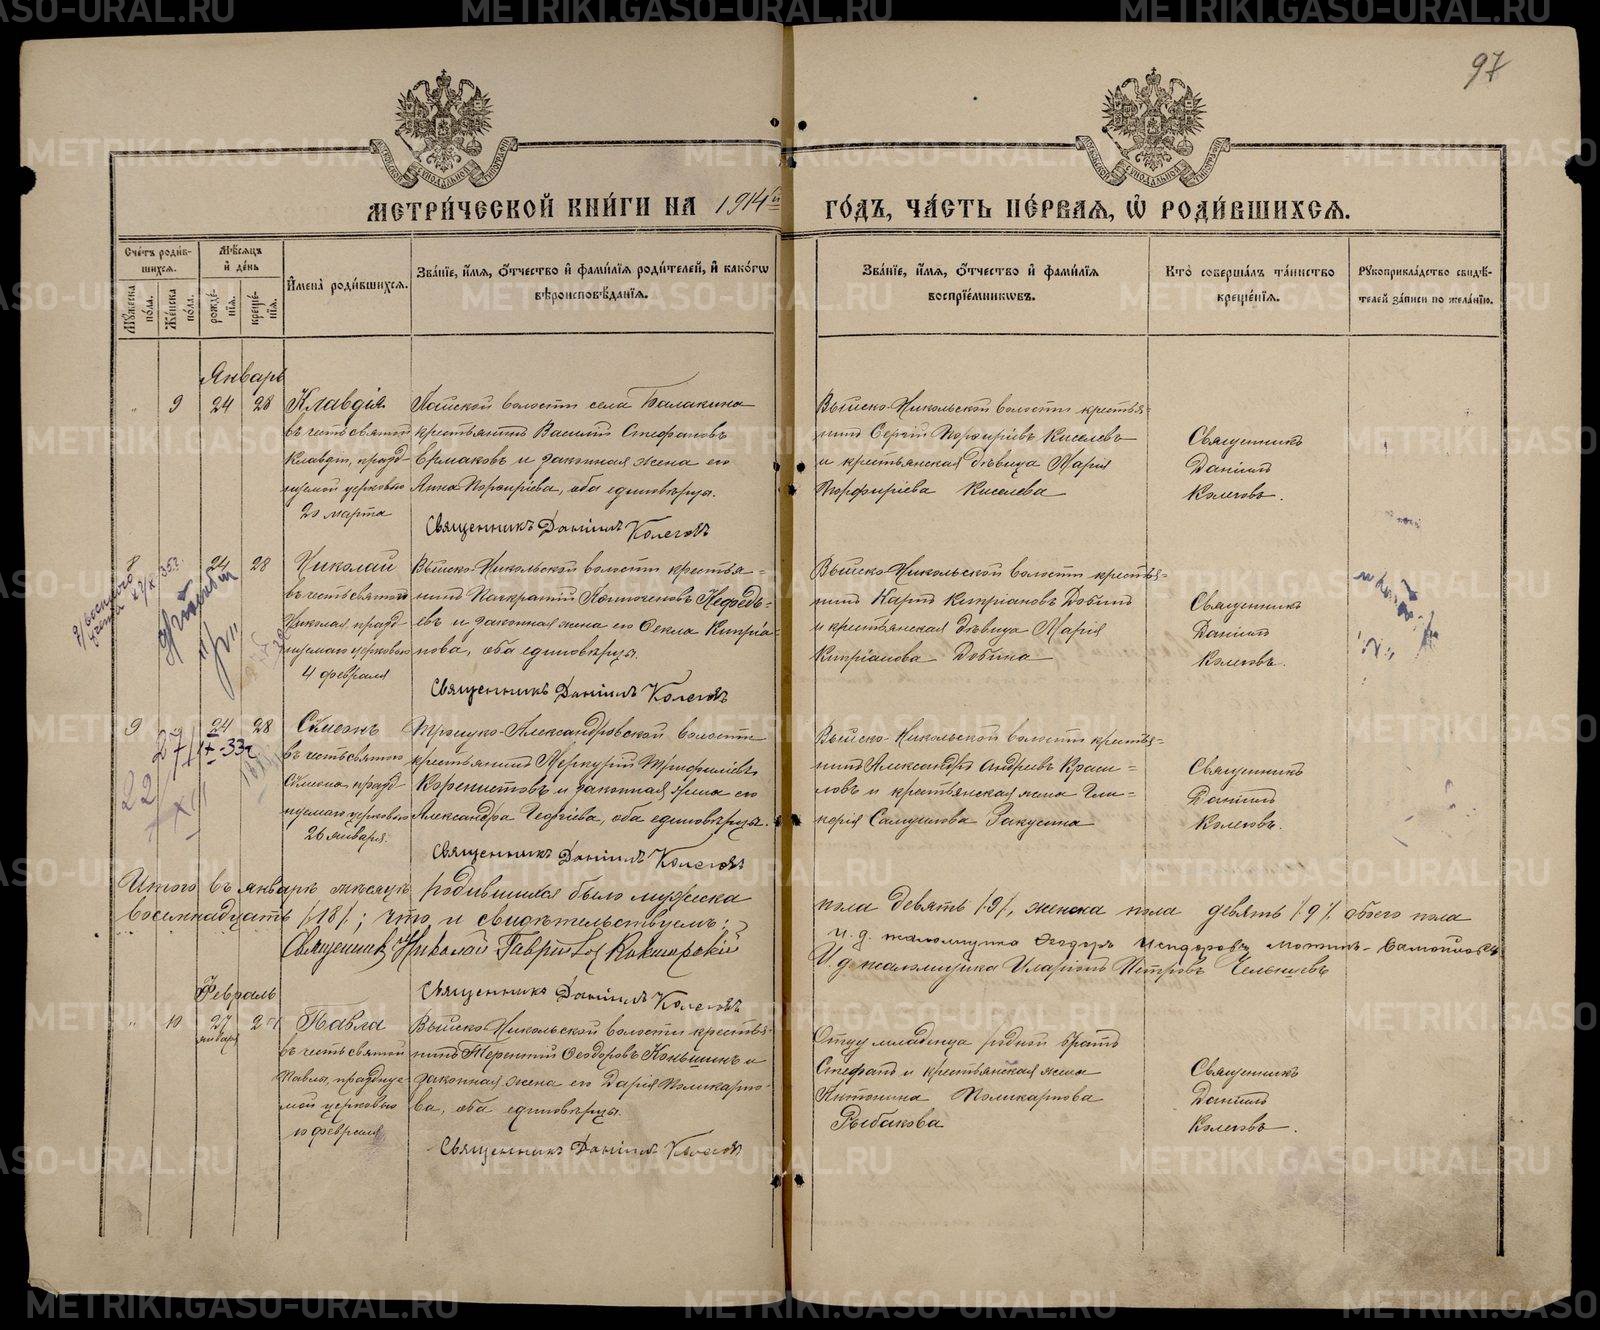 97
МЕТРИ́ЧЕСКОЙ КНИ́ГИ НА 1914й ГО́ДЪ, ЧА́СТЬ ПЕ́РВАЯ, Ѡ РОДИ́ВШИХСЯ.
Сче́тъ роди́вшихся.
Мꙋ́жеска по́ла.
Же́нска по́ла.
Мѣ́сяцъ и де́нь
рожде́нїя.
креще́нїя.
И҆мена̀ роди́вшихся.
Зва́нїе, и҆́мя, ѻ҆́тчество и҆ фами́лїя роди́телей, и҆ како́гѡ вѣроисповѣ́данїя.
Зва́нїе, и҆́мя, ѻ҆́тчество и҆ фами́лїя воспрїе́мникѡвъ.
Кто̀ соверша́лъ та́инство креще́нїя.
Рꙋкоприкла́дство свидѣ́телей за́писи по жела́нїю.
Январь
" 9 24 28
Клавдія
въ честь святой
Клавдіи, празд-
нуемой церковью
20 марта
Тайской волости села Балакина
крестьянинъ Василій Стефановъ
Ермаковъ и законная жена его
Анна Порфиріева, оба единовѣрцы.
Священникъ Даніилъ Колеговъ
Выйско-Никольской волости крестья-
нинъ Сергій Порфиріевъ Киселевъ
и крестьянская дѣвица Марія
Порфиріева Киселева
Священникъ
Даніилъ
Колеговъ.
8 24 28
Николай
въ честь святого
Николая празд-
нуемаго церковью
4 февраля
Выйско-Никольской волости крестья-
нинъ Панкратій Нефедь-
евъ и законная жена его Ѳекла Кипріа-
нова, оба единовѣрцы.
Священникъ Даніилъ Колеговъ
Выйско-Никольской волости крестья-
нинъ Карпъ Кипріановъ Добинъ
и крестьянская дѣвица Марія
Кипріанова Добина
Священникъ
Даніилъ
Колеговъ.
9 24 28
27/IX-33г
22/XII
Сѵмеонъ
въ честь святого
Сѵмеона празд-
нуемаго церковью
26 января.
Троицко-Александровской волости
крестьянинъ Меркурій Трифиліевъ
Коренистовъ и законная жена его
Александра Георгіева, оба единовѣрцы.
Священникъ Даніилъ Колеговъ
Выйско-Никольской волости крестья-
нинъ Александръ Андреевъ Краси-
ловъ и крестьянская жена Гли-
керія Самуилова Закусина
Священникъ
Даніилъ
Колеговъ.
Итого въ январѣ мѣсяцѣ родившихся было мужеска пола девять /9/, женска пола девять /9/ обоего пола
восемнадцать /18/; что и свидѣтельствуемъ:
Священникъ Николай Гавриловъ
И. д. псаломщика Иларіонъ Петровъ Челышевъ
Священникъ Даніилъ Колеговъ
Февраль
" 10 27 января 2
Павла
въ честь святой
Павлы, празднуе-
мой церковью
10 февраля
Выйско-Никольской волости крестья-
нинъ Терентій Ѳеодоровъ Коньшинъ и
законная жена его Дарія Поликарпо-
ва, оба единовѣрцы.
Священникъ Даніилъ Колеговъ
Отцу младенца родной братъ
Стефанъ и крестьянская жена
Антонина Поликарпова
Рыбакова
Священникъ
Даніилъ
Колеговъ.
METRIKI.GASO-URAL.RU